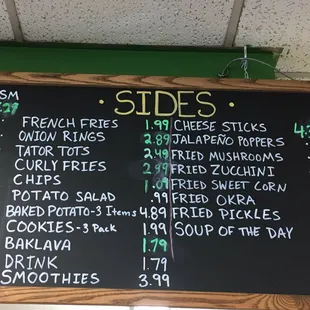 SM
· SIDES ·
FRENCH FRIES 1.99
ONION RINGS 2.89
TATOR TOTS 2.49
CURLY FRIES 2.99
CHIPS 1.09
POTATO SALAD .99
BAKED POTATO-3 Items 4.89
COOKIES-3 Pack 1.99
BAKLAVA 1.79
DRINK 1.79
SMOOTHIES 3.99
CHEESE STICKS
JALAPEÑO POPPERS
FRIED MUSHROOMS
FRIED ZUCCHINI
FRIED SWEET CORN
FRIED OKRA
FRIED PICKLES
SOUP OF THE DAY